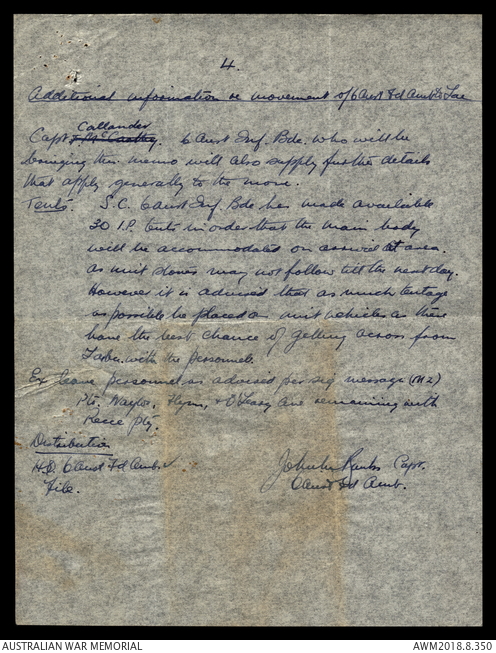 4.
Additional information re movement of 6 Aust Fd Amb to Lae
Callander
Capt J. McCarthy. 6 Aust Inf. Bde. who will be
bringing this memo will also supply further details
that apply generally to the move.
Tents. S.C. 6 Aust Inf. Bde has made available
30 I.P. tents in order that the main body
will be accommodated on arrival at area.
as unit stores may not follow till the next day.
However it is advised that as much tentage
as possible be placed on unit vehicles as these
have the best chance of getting across from
with the personnel.
Ex leave personnel as advised per sig message (M2)
Pts. Naylor, Flynn, & O'Leary are remaining with
Recce pty.
Distribution
H.Q. 6 Aust Fd Amb. ✓
File.
Capt.
6 Aust Fd Amb.
AUSTRALIAN WAR MEMORIAL
AWM2018.8.350